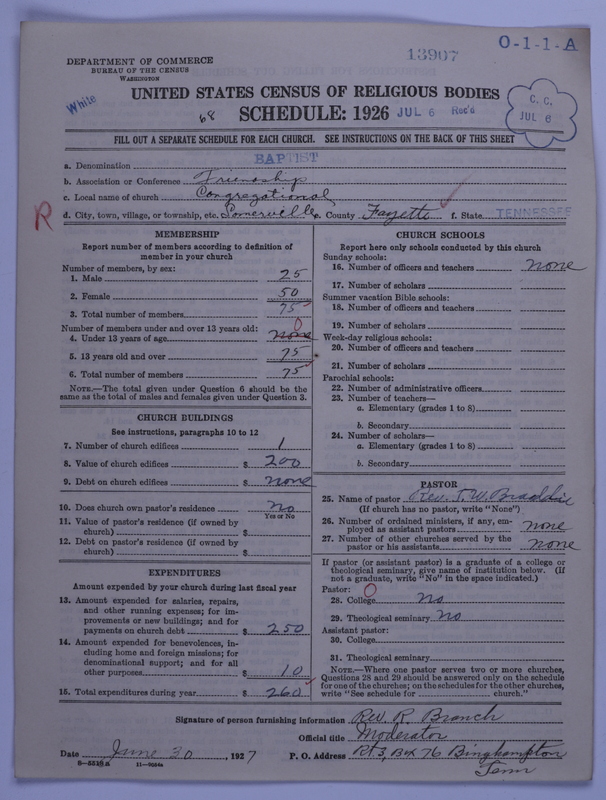 13907
0-1-1-A
DEPARTMENT OF COMMERCE
BUREAU OF THE CENSUS
WASHINGTON
White
UNITED STATES CENSUS OF RELIGIOUS BODIES
68 SCHEDULE: 1926 JUL 6 Rec'd
C. C.
JUL 6
FILL OUT A SEPARATE SCHEDULE FOR EACH CHURCH. SEE INSTRUCTIONS ON THE BACK OF THIS SHEET
a. Denomination BAPTIST
b. Association or Conference Friendship
c. Local name of church Congregational
R d. City, town, village, or township, etc. Somerville e. County Fayette f. State TENNESSEE
MEMBERSHIP
Report number of members according to definition of
member in your church
Number of members, by sex:
1. Male 25
2. Female 50
3. Total number of members 75
Number of members under and over 13 years old:
4. Under 13 years of age none 0
5. 13 years old and over 75
6. Total number of members 75
NOTE.—The total given under Question 6 should be the
same as the total of males and females given under Question 3.
CHURCH BUILDINGS
See instructions, paragraphs 10 to 12
7. Number of church edifices 1
8. Value of church edifices $ 200
9. Debt on church edifices $ none
10. Does church own pastor's residence no
Yes or No
11. Value of pastor's residence (if owned by
church) $
12. Debt on pastor's residence (if owned by
church) $
EXPENDITURES
Amount expended by your church during last fiscal year
13. Amount expended for salaries, repairs,
and other running expenses; for im-
provements or new buildings; and for
payments on church debt $ 250
14. Amount expended for benevolences, in-
cluding home and foreign missions; for
denominational support; and for all
other purposes $ 10
15. Total expenditures during year $ 260
CHURCH SCHOOLS
Report here only schools conducted by this church
Sunday schools:
16. Number of officers and teachers none
17. Number of scholars
Summer vacation Bible schools:
18. Number of officers and teachers
19. Number of scholars
Week-day religious schools:
20. Number of officers and teachers
21. Number of scholars
Parochial schools:
22. Number of administrative officers
23. Number of teachers—
a. Elementary (grades 1 to 8)
b. Secondary
24. Number of scholars—
a. Elementary (grades 1 to 8)
b. Secondary
PASTOR
25. Name of pastor Rev. T. W.
(If church has no pastor, write "None")
26. Number of ordained ministers, if any, em-
ployed as assistant pastors none
27. Number of other churches served by the
pastor or his assistants none
If pastor (or assistant pastor) is a graduate of a college or
theological seminary, give name of institution below. (If
not a graduate, write "No" in the space indicated.)
Pastor: 0
28. College no
29. Theological seminary no
Assistant pastor:
30. College
31. Theological seminary
NOTE.—Where one pastor serves two or more churches,
Questions 28 and 29 should be answered only on the schedule
for one of the churches; on the schedules for the other churches,
write "See schedule for church."
Signature of person furnishing information Rev. R. Branch
Official title Moderator
Date June 30, 1927 P. O. Address Rt 3, Box 76 Binghampton
Tenn